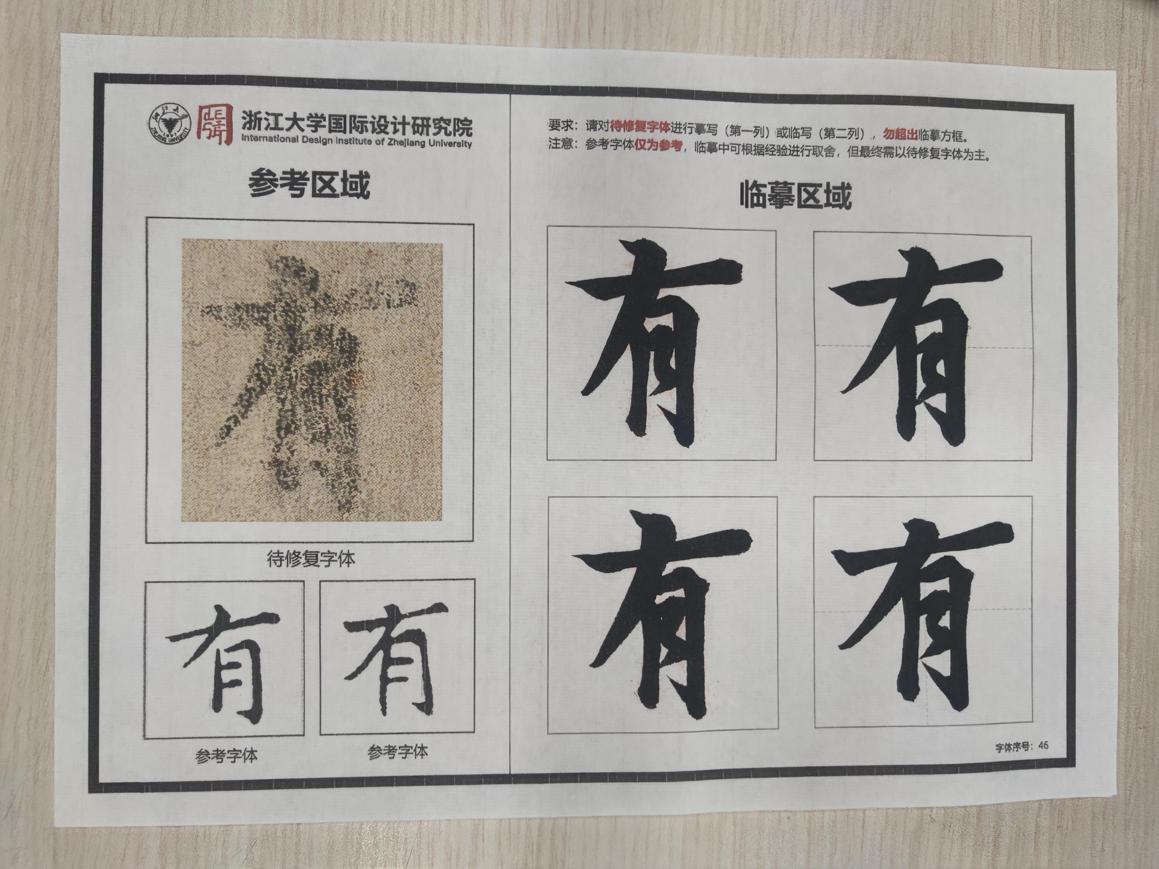 浙江大学国际设计研究院
International Design Institute of Zhejiang University
参考区域
有
待修复字体
有
有
参考字体
参考字体
要求：请对待修复字体进行摹写（第一列）或临写（第二列），勿超出临摹方框。
注意：参考字体仅为参考，临摹中可根据经验进行取舍，但最终需以待修复字体为主。
临摹区域
有
有
有
有
字体序号：46